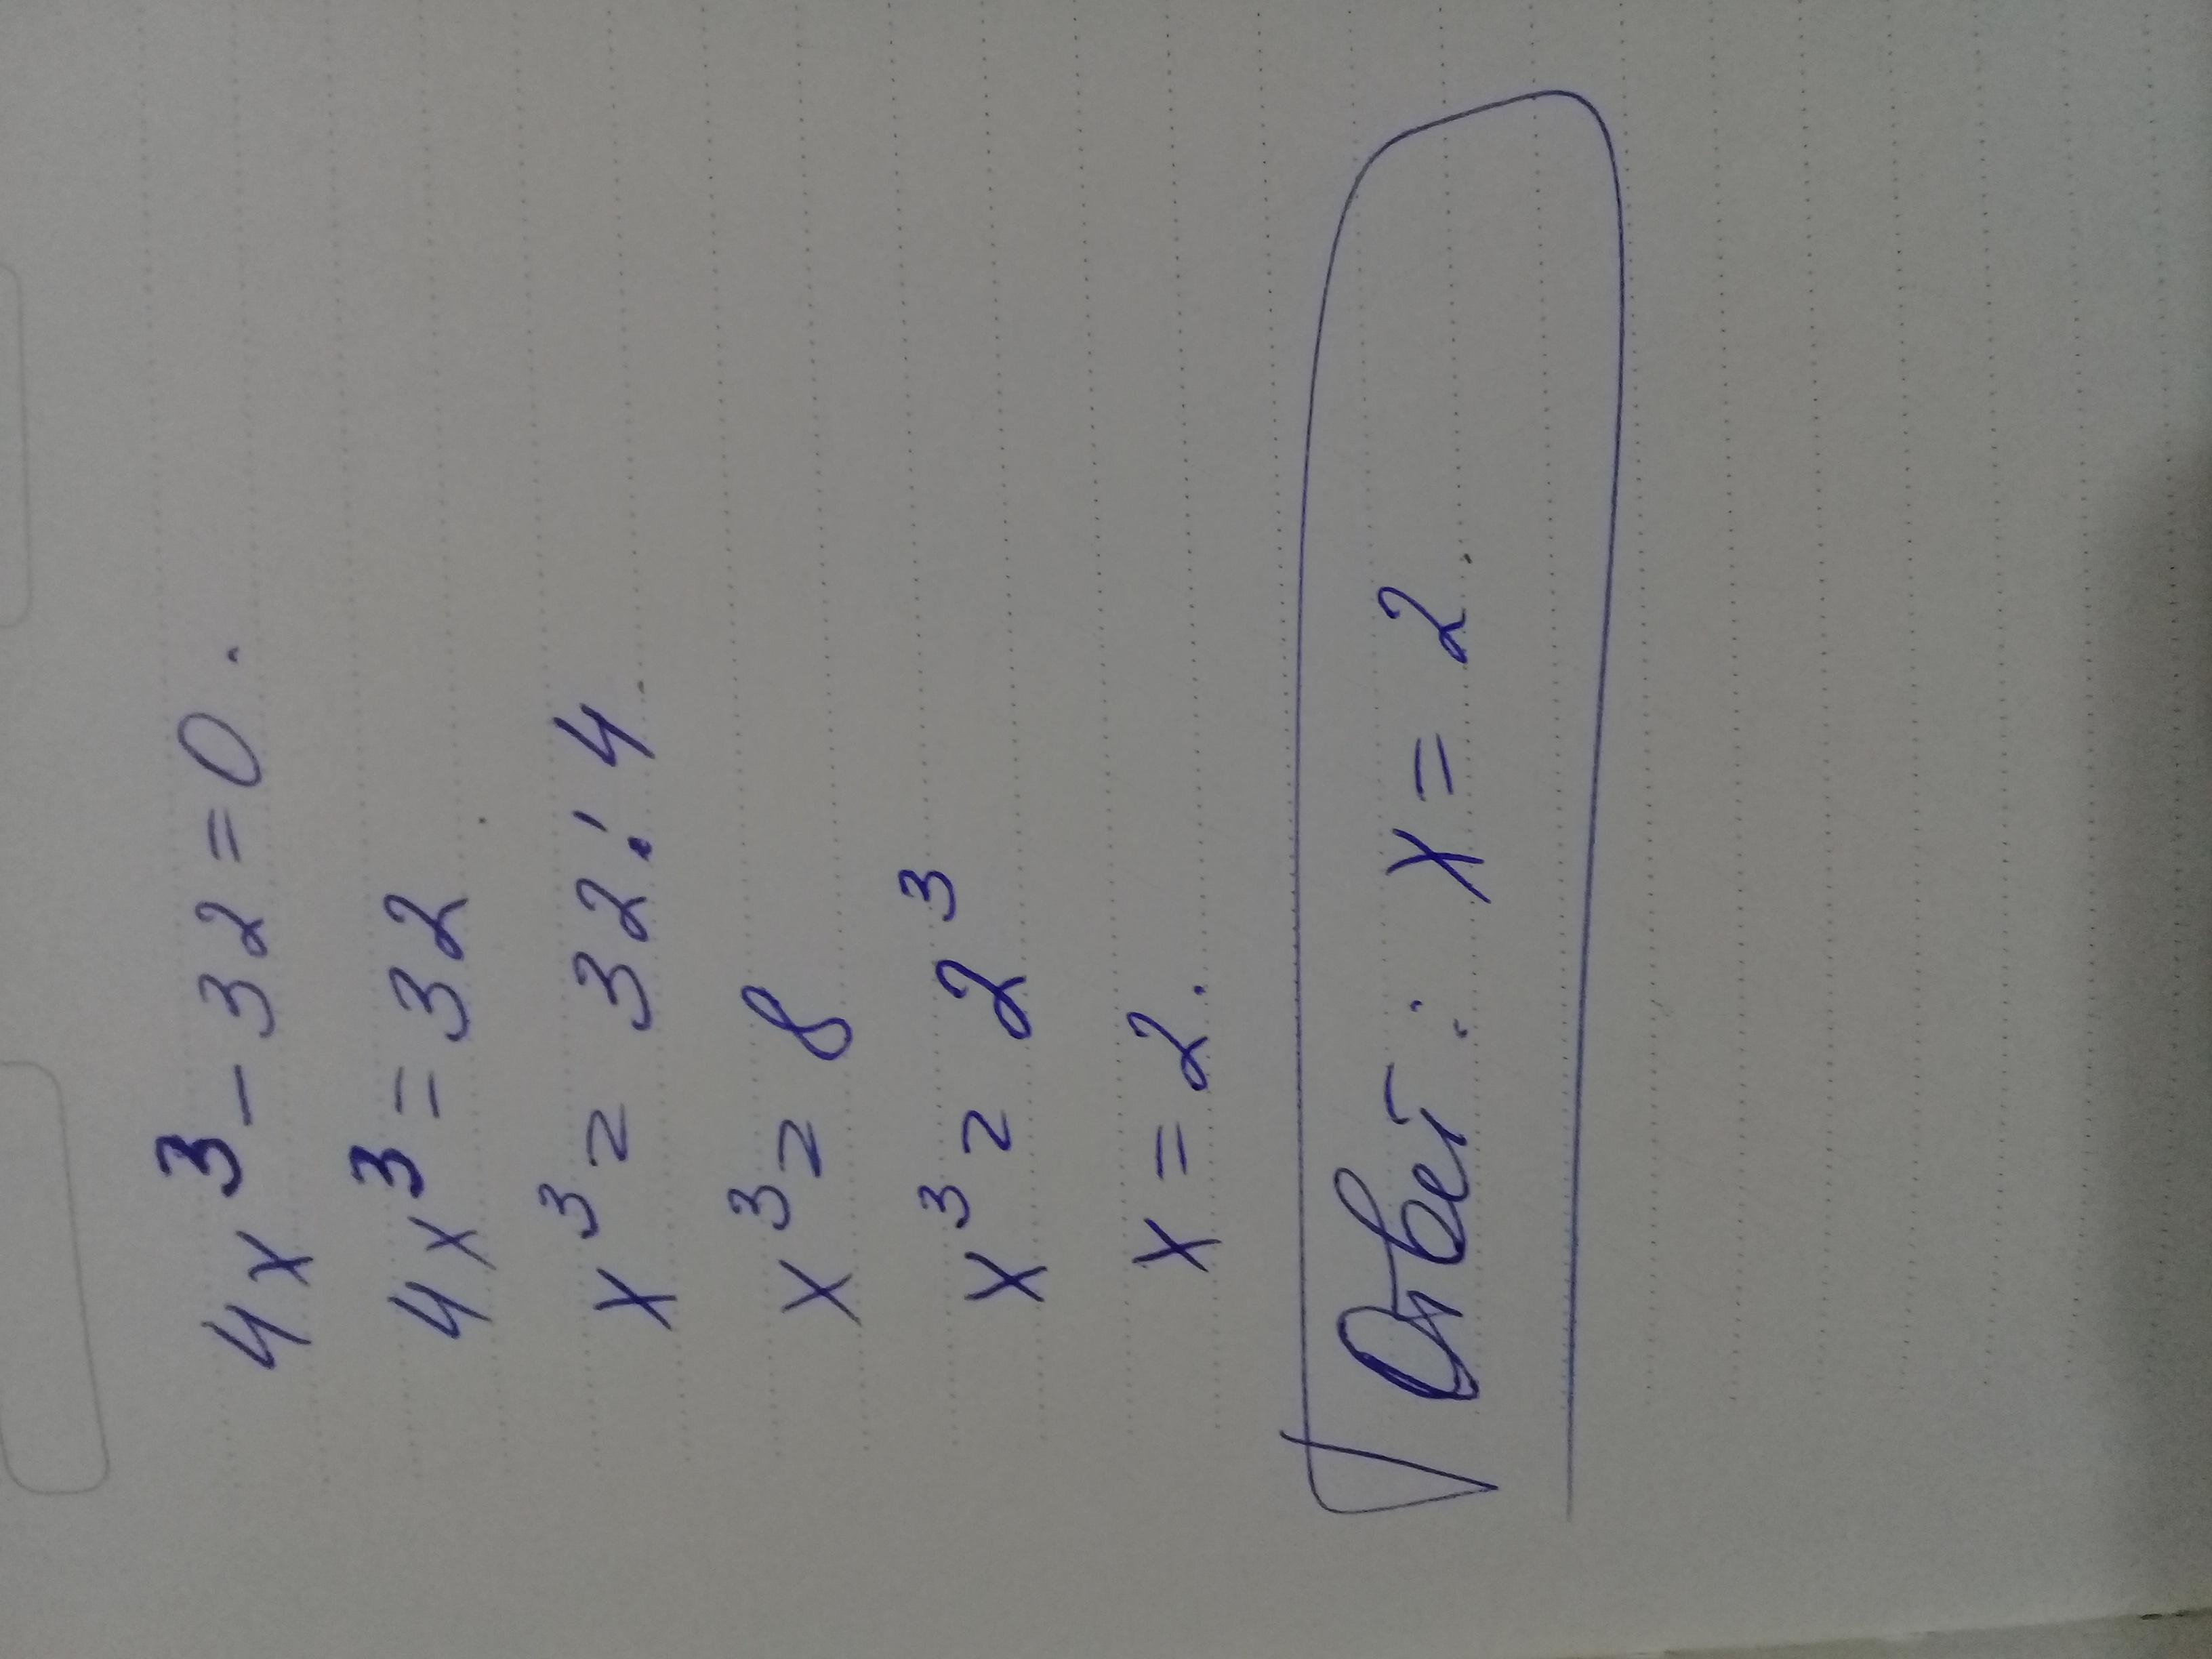 4x³ - 32 = 0.
4x³ = 32
x³ = 32 : 4
x³ = 8
x³ = 2³
x = 2.
Ответ: x = 2